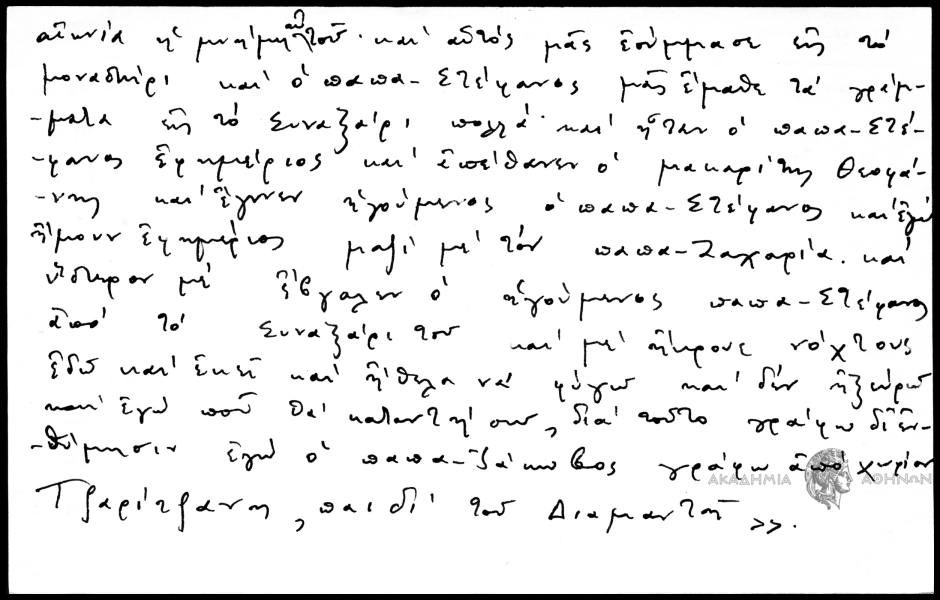 αἰωνία ἡ μνήμη αὐτοῦ· καί αὐτός μᾶς ἐσύμμασε εἰς τό
μοναστήρι καί ὁ παπα-Στέφανος μᾶς ἔμαθε τά γράμ-
-ματα εἰς τό Συναξάρι πολλά· καί ἦταν ὁ παπα-Στέ-
-φανος ἐφημέριος καί ἐπέθανεν ὁ μακαρίτης Θεοφά-
-νης καί ἔγινεν ἡγούμενος ὁ παπα-Στέφανος καί ἐγώ
ἤμουν ἐφημέριος μαζί μέ τόν παπα-Ζαχαρία. καί
ὕστερον μέ ἔβγαλεν ὁ ἡγούμενος παπα-Στέφανος
ἀπό τό Συναξάρι του καί μέ νόχτους
ἐδῶ καί ἐκεῖ καί ἤθελα νά φύγω καί δέν ἠξεύρω
καί ἐγώ ποῦ θά καταντήσω, διά τοῦτο γράφω δι' ἐν-
-θύμησιν ἐγώ ὁ παπα-Ἰάκωβος γράφω ἀπό χωρίον
Τζαρίτζανης, παιδί τοῦ Διαμαντῆ >>.
ΑΚΑΔΗΜΙΑ ΑΘΗΝΩΝ